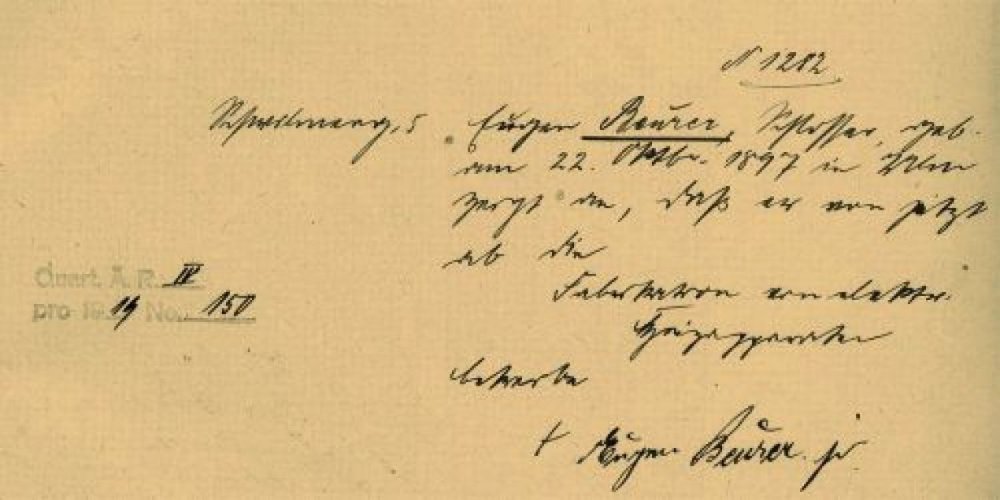 N 1282
Eugen Beurer, Schlosser, geb.
am 22. Oktbr. 1897 in Ulm
zeigt an, daß er von jetzt
ab die
Fabrikation von elektr.
Heizapparaten
betreibe
Quart. A. R. IV
pro 1919 No. 150
Eugen Beurer jr